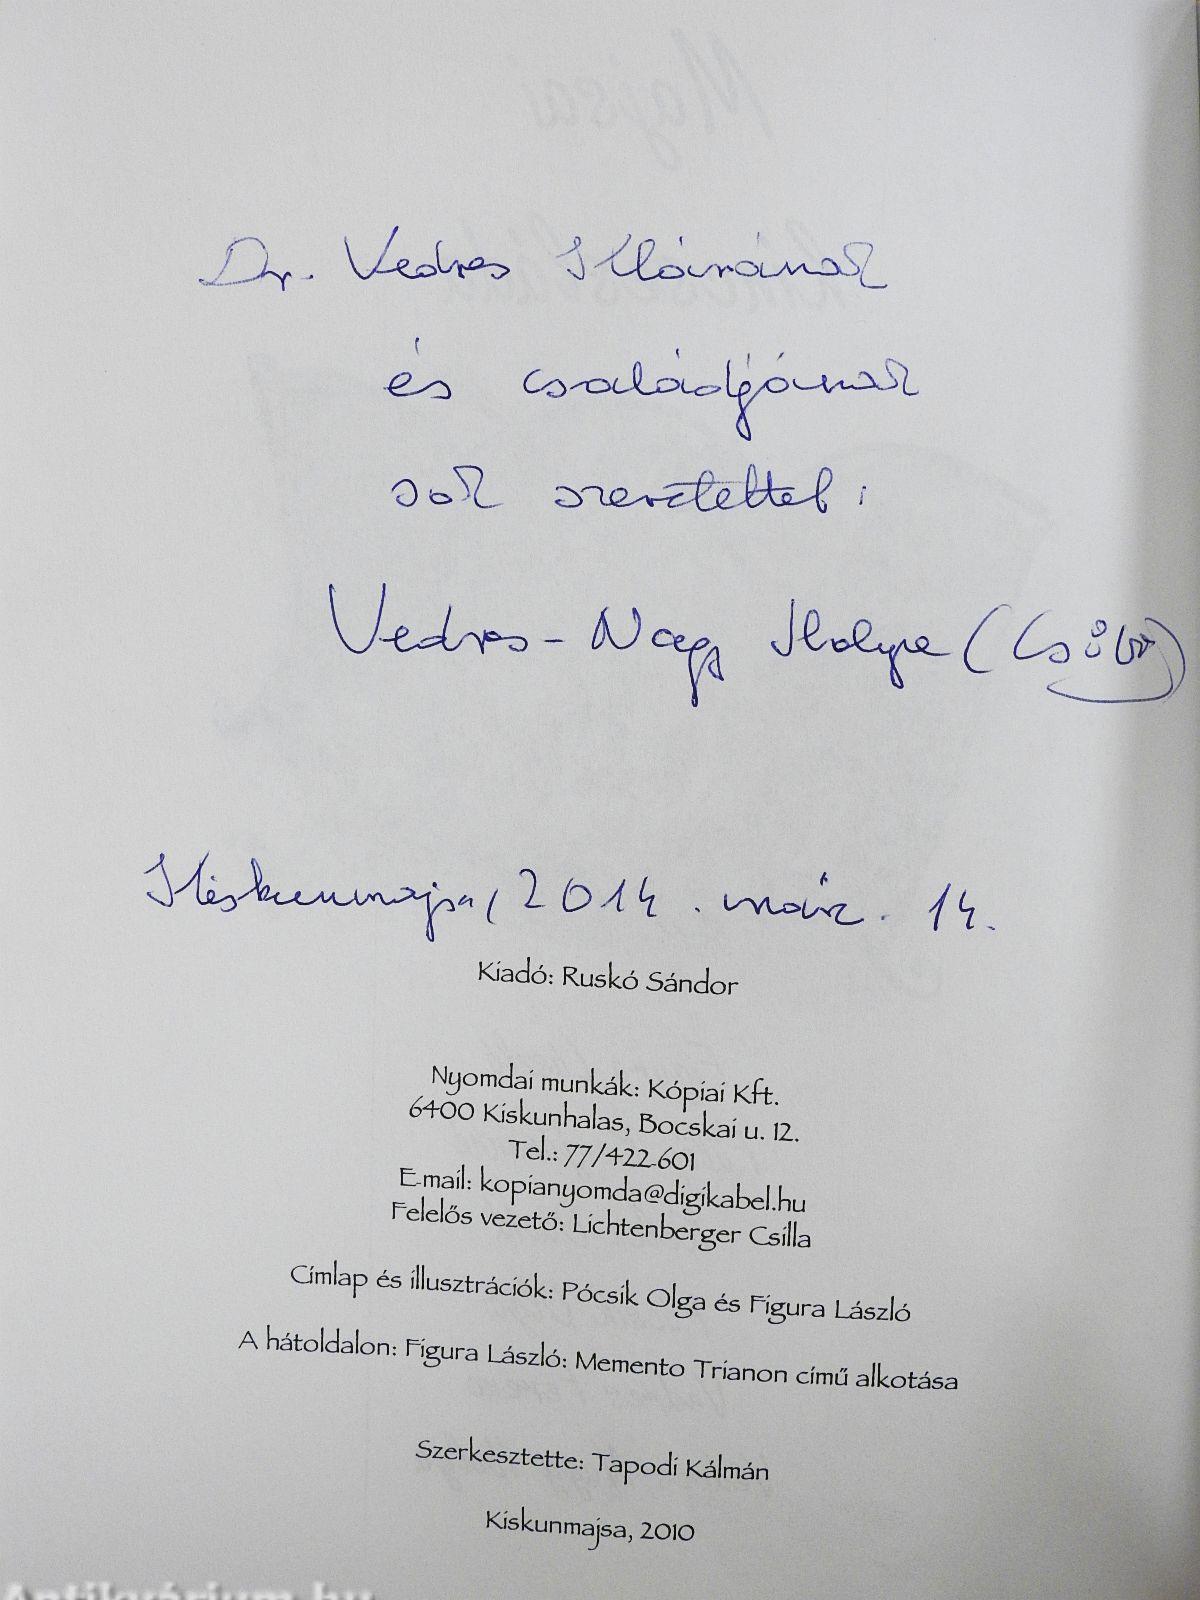 Majsai
Dr. Vedres Klárának
és családjának
sok szeretettel:
Vedres-Nagy Ibolya (Csibi)
Kiskunmajsa, 2014. márc. 14.
Kiadó: Ruskó Sándor
Nyomdai munkák: Kópiai Kft.
6400 Kiskunhalas, Bocskai u. 12.
Tel.: 77/422-601
E-mail: kopianyomda@digikabel.hu
Felelős vezető: Lichtenberger Csilla
Címlap és illusztrációk: Pócsik Olga és Figura László
A hátoldalon: Figura László: Memento Trianon című alkotása
Szerkesztette: Tapodi Kálmán
Kiskunmajsa, 2010
Antikvárium.hu